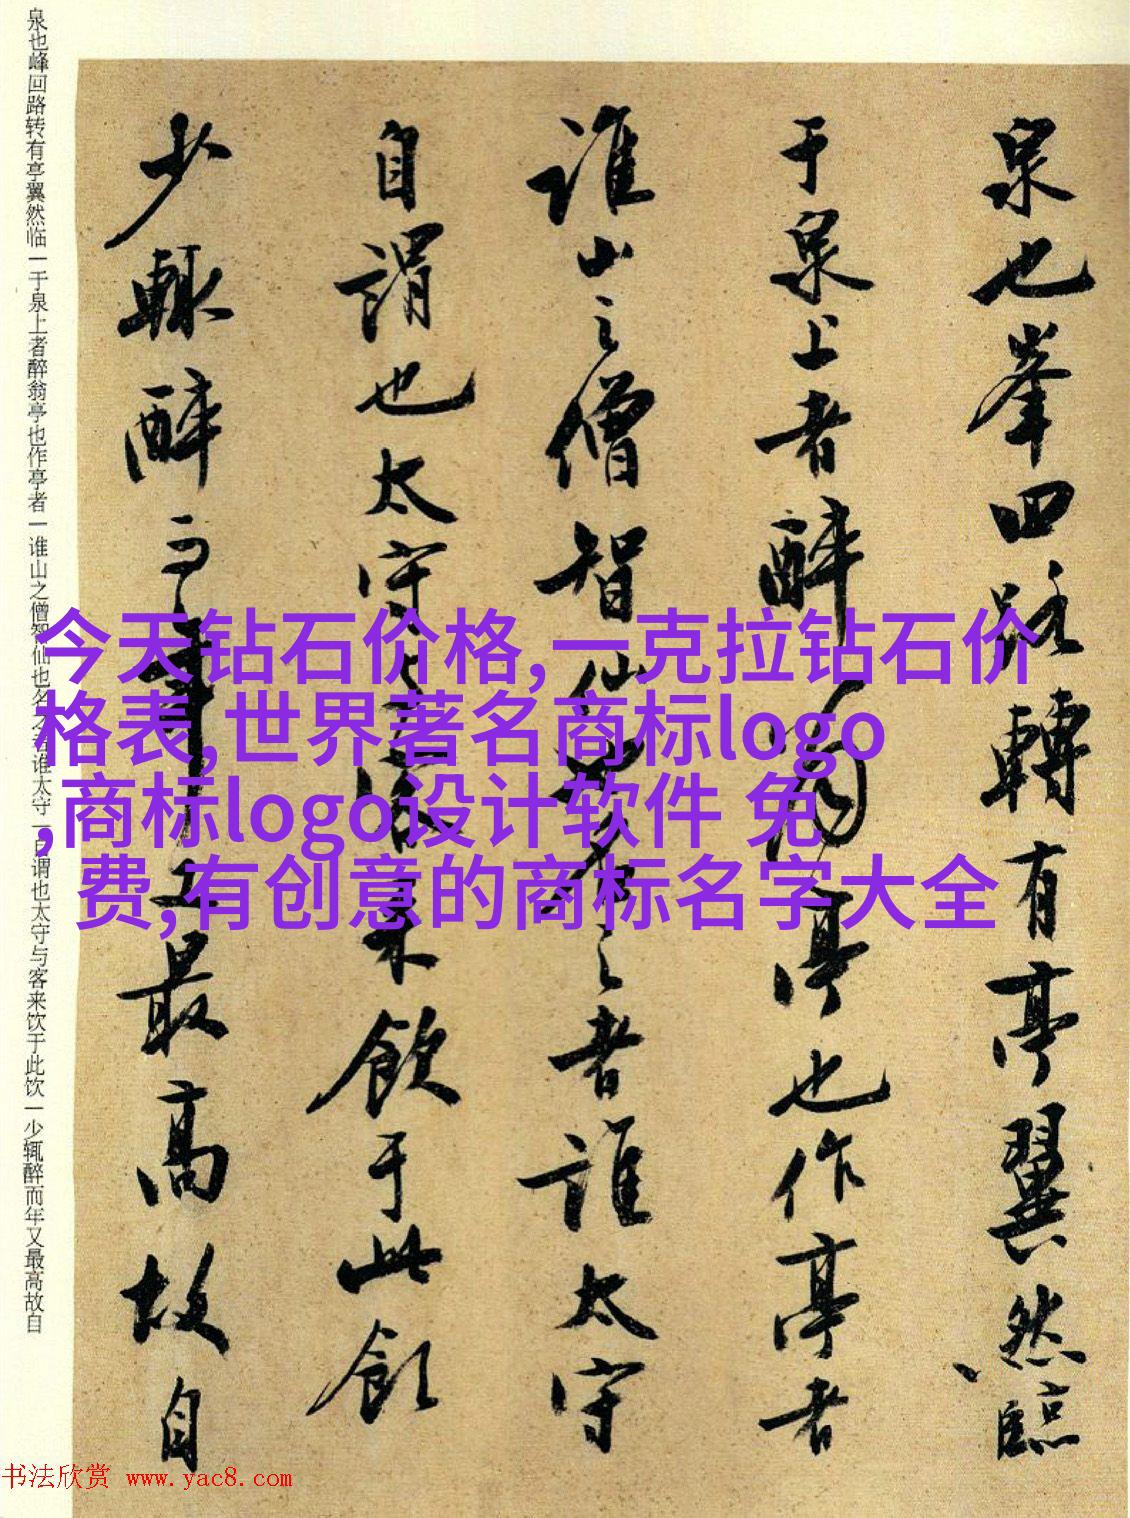 泉也峯回路轉有亭翼然臨
于泉上者醉翁亭也作亭者
誰山之僧智仙也名之者誰太守
自謂也太守與客来飲于此飲
少輙醉而年又最高故自
泉也峰回路转有亭翼然临一于泉上者醉翁亭也作亭者一谁山之僧智仙也名之者谁太守一自谓也太守与客来饮于此饮一少辄醉而年又最高故自
今天钻石价格,一克拉钻石价
格表,世界著名商标logo
,商标logo设计软件 免
费,有创意的商标名字大全
书法欣赏 www.yac8.com